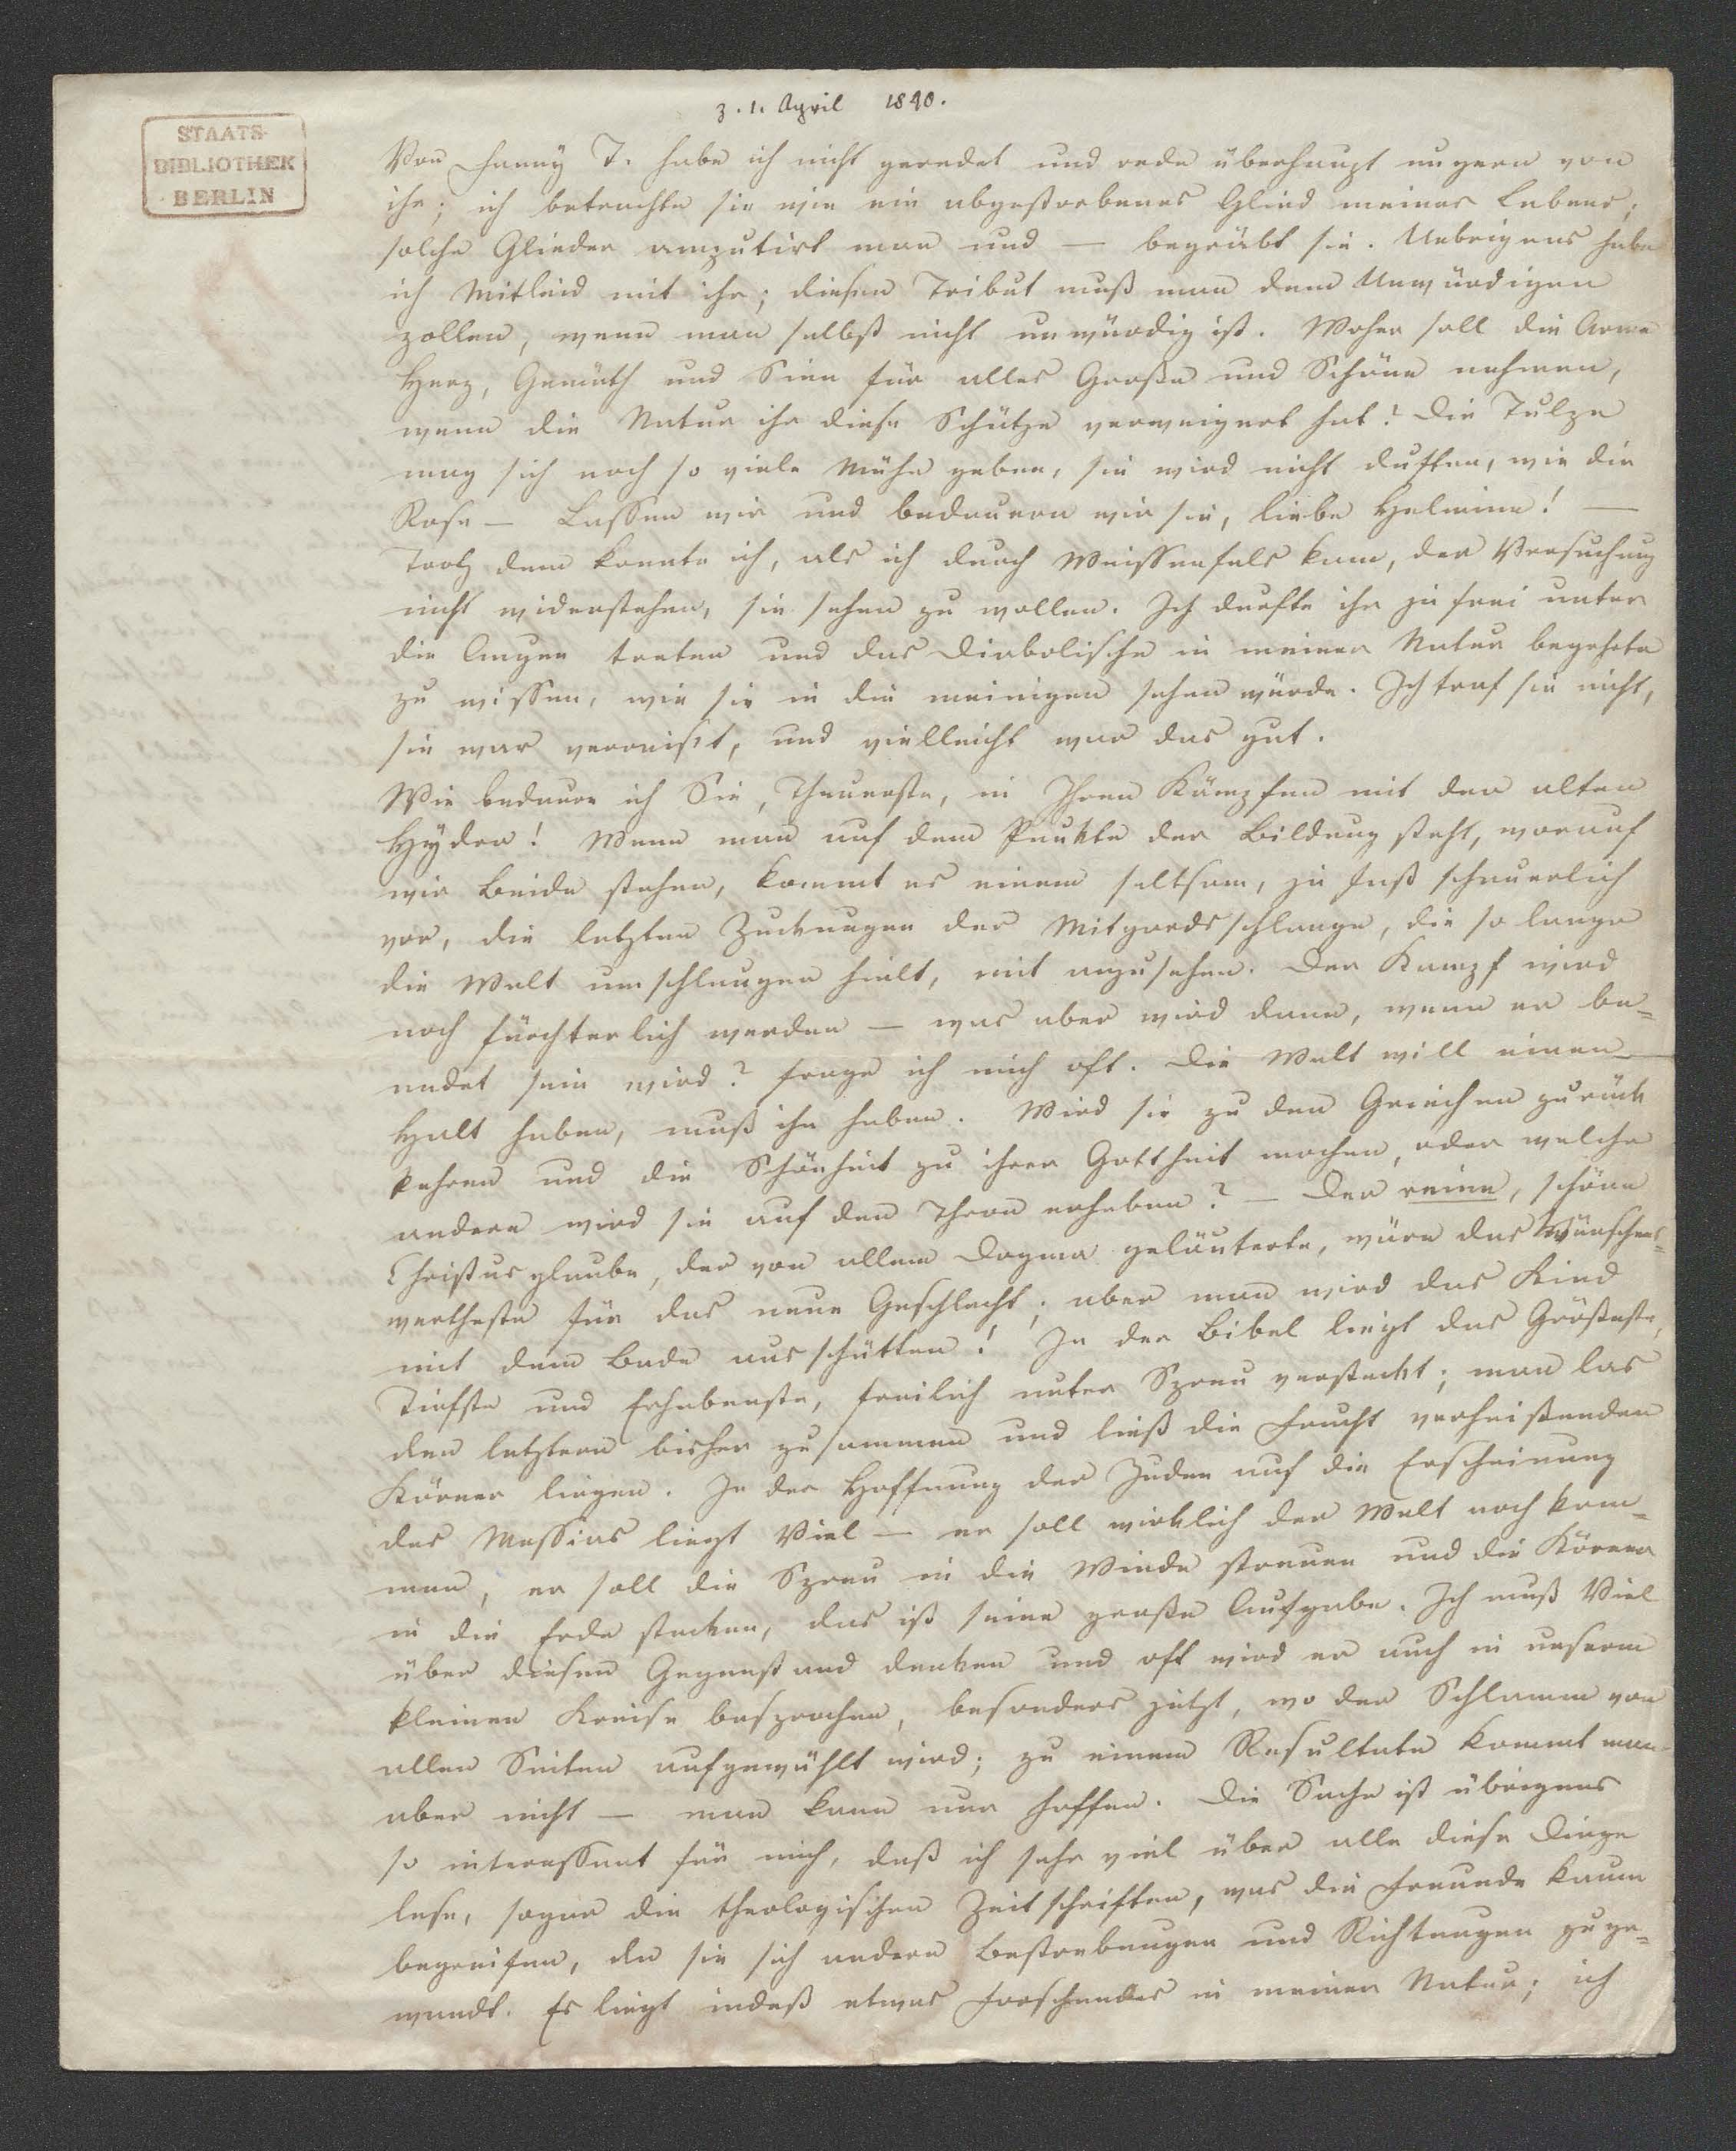 z. 1. April 1840.
STAATS-
BIBLIOTHEK
BERLIN
Von Fanny T. habe ich nicht geredet und rede überhaupt ungern von
ihr; ich betrachte sie wie ein abgestorbenes Glied meines Lebens;
solche Glieder amputirt man und — begräbt sie. Uebrigens habe
ich Mitleid mit ihr; diesen Tribut muß man dem Unwürdigen
zollen, wenn man selbst nicht unwürdig ist. Woher soll die Arme
Herz, Gemüth und Sinn für alles Große und Schöne nehmen,
wenn die Natur ihr diese Schätze verweigert hat? Die Tulpe
mag sich noch so viele Mühe geben, sie wird nicht duften, wie die
Rose — Lassen wir und bedauern wir sie, liebe Helmine! —
Trotz dem konnte ich, als ich durch Weissenfels kam, der Versuchung
nicht widerstehen, sie sehen zu wollen. Ich durfte ihr ja frei unter
die Augen treten und das Diabolische in meiner Natur begehrte
zu wissen, wie sie in die meinigen sehen würde. Ich traf sie nicht,
sie war verreist, und vielleicht war das gut.
Wie bedaure ich Sie, Theuerste, in Ihren Kämpfen mit der alten
Hyder! Wenn man auf dem Punkte der Bildung steht, worauf
wir Beide stehen, kommt es einem seltsam, ja fast schauerlich
vor, die letzten Zuckungen der Mitgardsschlange, die so lange
die Welt umschlungen hielt, mit anzusehen. Der Kampf wird
noch fürchterlich werden — was aber wird dann, wenn er be-
endet sein wird? frage ich mich oft. Die Welt will einen
Halt haben, muß ihn haben. Wird sie zu den Griechen zurück
kehren und die Schönheit zu ihrer Gottheit machen, oder welche
andere wird sie auf den Thron erheben? — Der reine, schöne
Christusglaube, der von allem Dogma geläuterte, wäre das Wünschens-
wertheste für das neue Geschlecht; aber man wird das Kind
mit dem Bade ausschütten! In der Bibel liegt das Größeste,
Tiefste und Erhabenste, freilich unter Spreu versteckt; man las
den letztern bisher zusammen und ließ die Frucht verheißenden
Körner liegen. In der Hoffnung der Juden auf die Erscheinung
des Messias liegt Viel — er soll wirklich der Welt noch kom-
men, er soll die Spreu in die Winde streuen und die Körner
in die Erde stecken, das ist seine große Aufgabe. Ich muß Viel
über diesen Gegenstand denken und oft wird er auch in unserm
kleinen Kreise besprochen, besonders jetzt, wo der Schlamm von
allen Seiten aufgewühlt wird; zu einem Resultate kommt man
aber nicht — man kann nur hoffen. Die Sache ist übrigens
so interessant für mich, daß ich sehr viel über alle diese Dinge
lese, sogar die theologischen Zeitschriften, was die Freunde kaum
begreifen, da sie sich andern Bestrebungen und Richtungen zuge-
wandt. Es liegt indeß etwas Forschendes in meiner Natur; ich